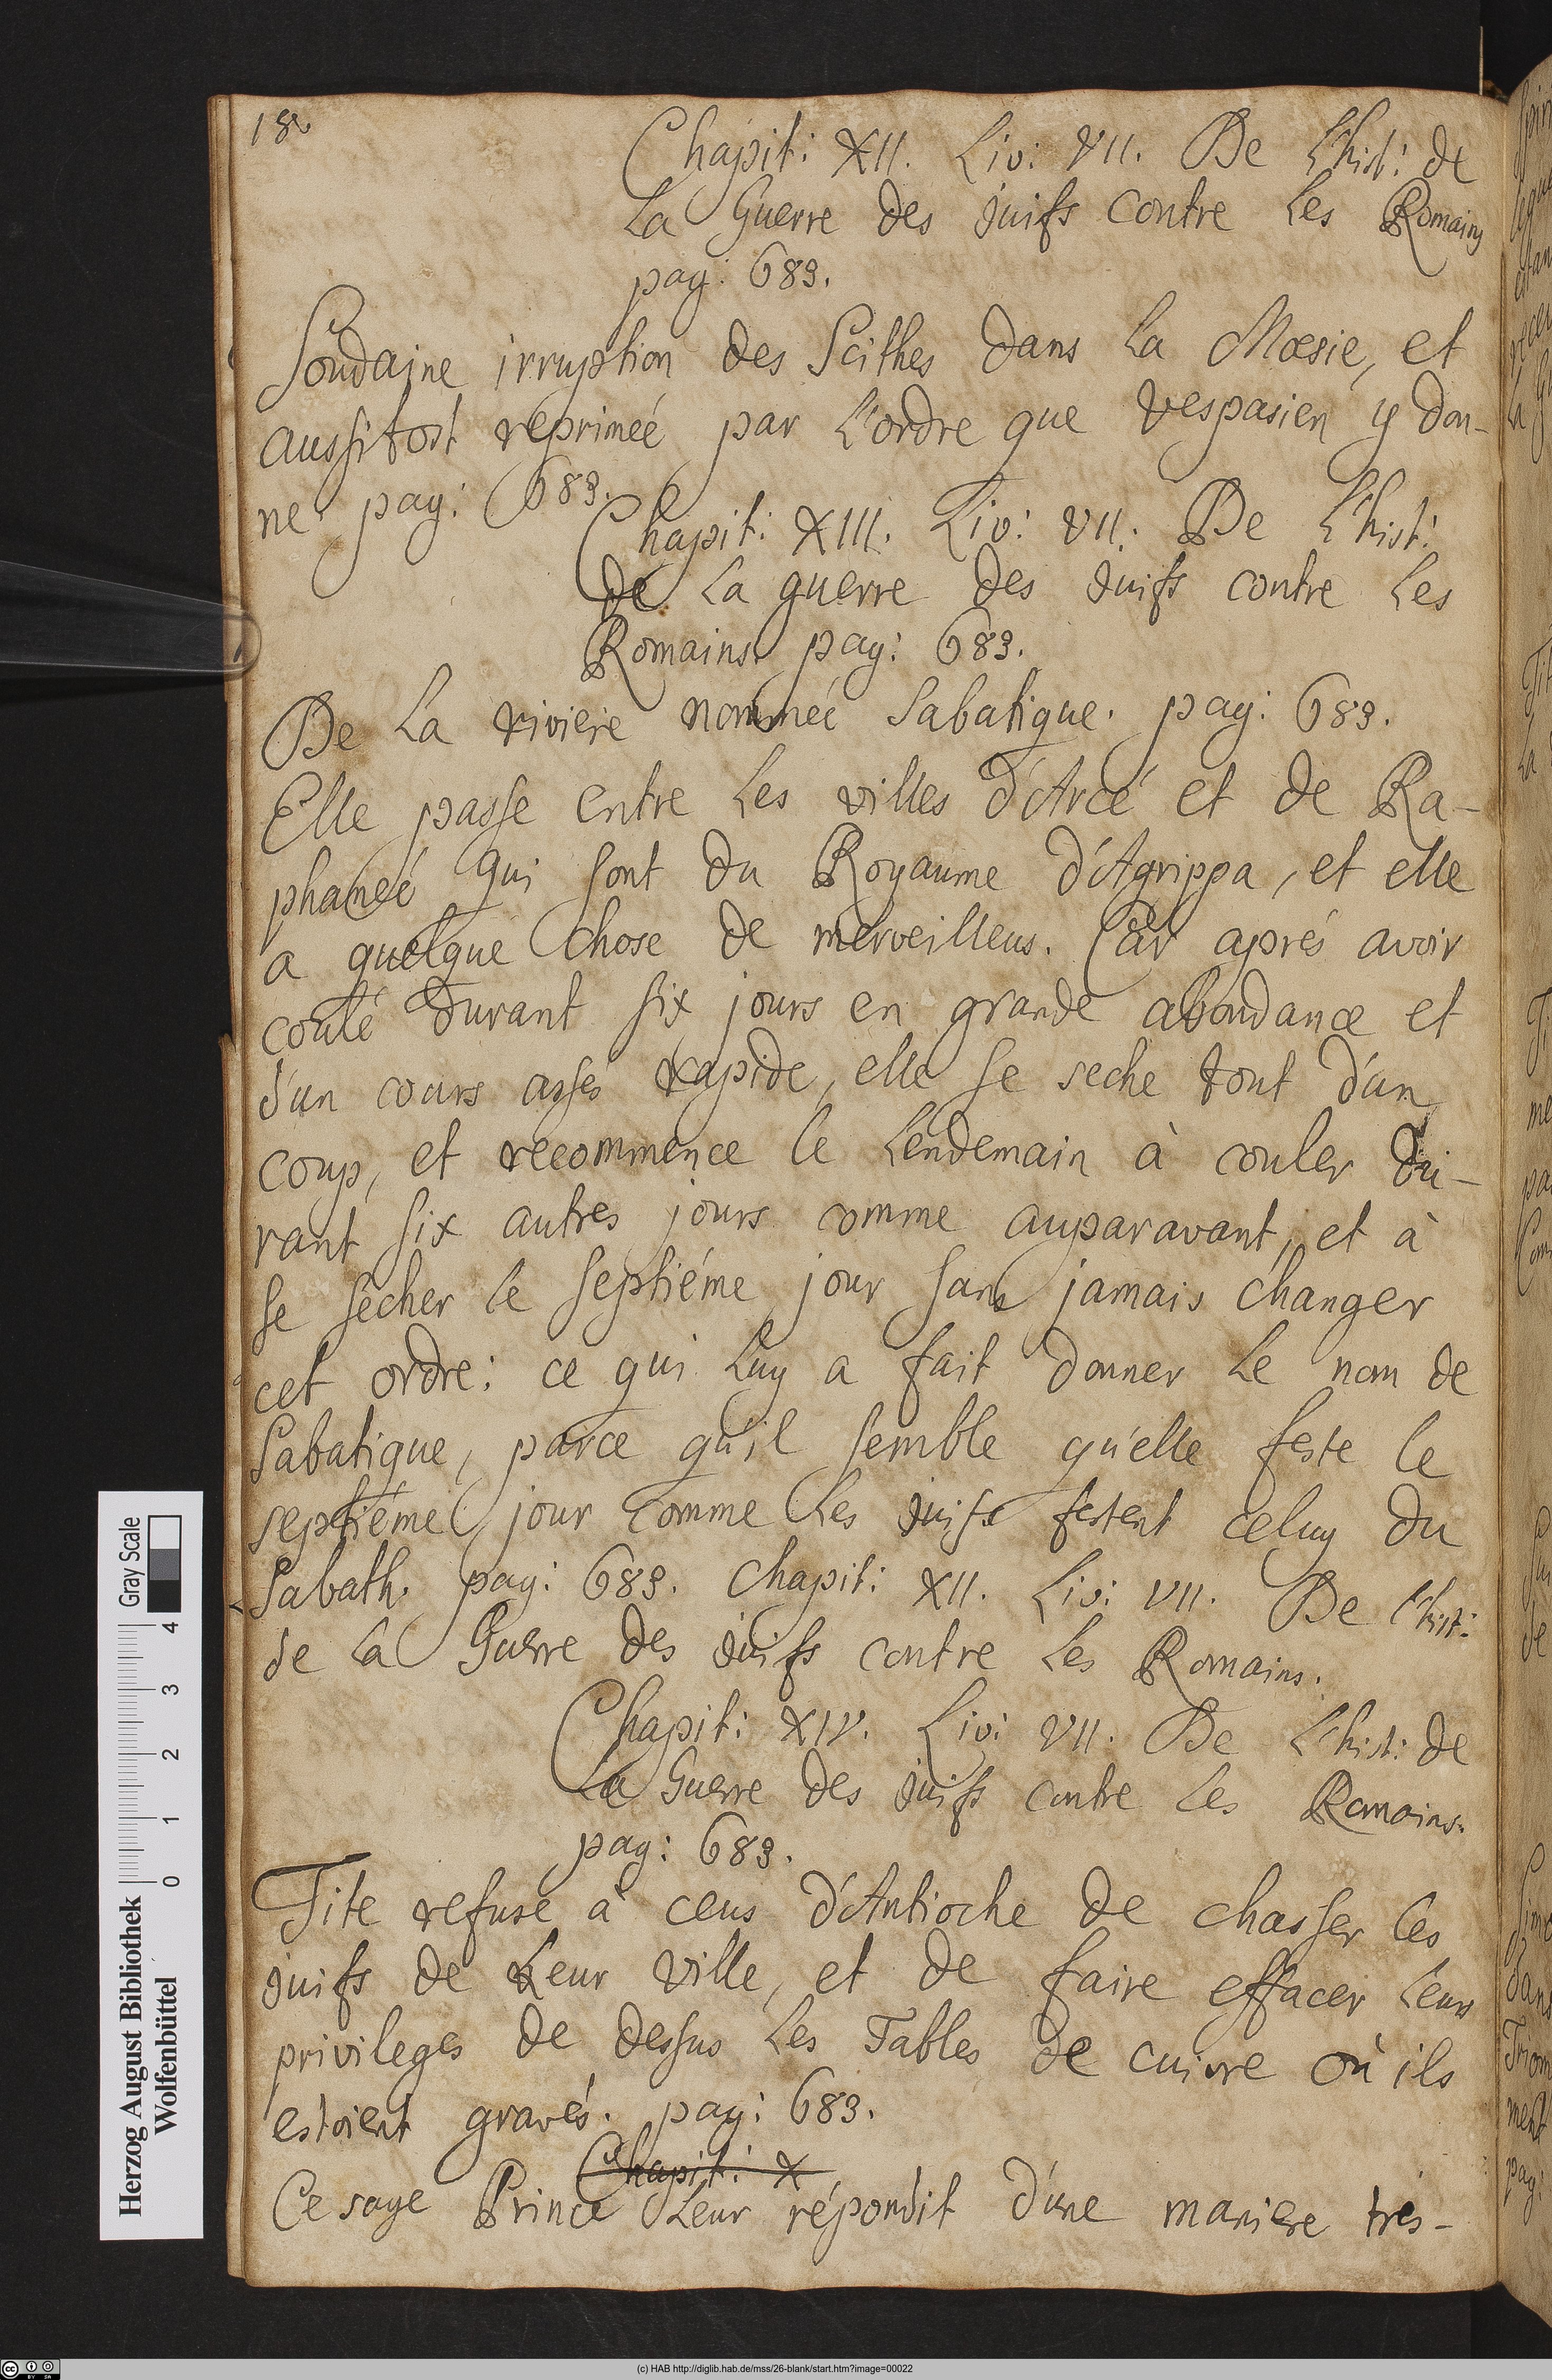 18.
Chapit: XII. Liv: VII. De L'hist: de
La Guerre des Juifs contre Les Romains
pag: 683.
Soudaine irruption des Scithes dans La Mœsie, et
aussitost reprimeé par L'ordre que Vespasien y don-
ne pag: 683.
Chapit: XIII. Liv: VII. De L'hist:
de La guerre des Juifs contre Les
Romains. pag: 683.
De La riviere nommeé Sabatique. pag: 683.
Elle passe entre Les villes d'Arcé et de Ra-
phaneé qui sont du Royaume d'Agrippa, et elle
a quelque chose de merveilleus. Car aprés avoir
coulé durant six jours en grande abondance et
d'un cours assés rapide, elle se seche tout d'un
coup, et recommence le Lendemain à couler du-
rant six autres jours comme auparavant, et à
se sécher le septiéme jour sans jamais changer
cet ordre: ce qui Luy a fait donner Le nom de
Sabatique, parce qu'il semble qu'elle feste le
septiéme jour comme Les Juifs festent celuy du
Sabath. pag: 683. Chapit: XII. Liv: VII. De l'hist:
de La Guerre des Juifs contre Les Romains.
Chapit: XIV. Liv: VII. De L'hist: de
La Guerre des Juifs contre Les Romains.
pag: 683.
Tite refuse à ceus d'Antioche de chasser les
Juifs de Leur Ville, et de faire effacer leurs
privileges de dessus Les Tables de cuivre où ils
estoient gravés. pag: 683.
Chapit: X
Ce sage Prince Leur répondit d'une maniere trés-
Herzog August Bibliothek
Wolfenbüttel
0 1 2 3 4
Gray Scale
(c) HAB http://diglib.hab.de/mss/26-blank/start.htm?image=00022